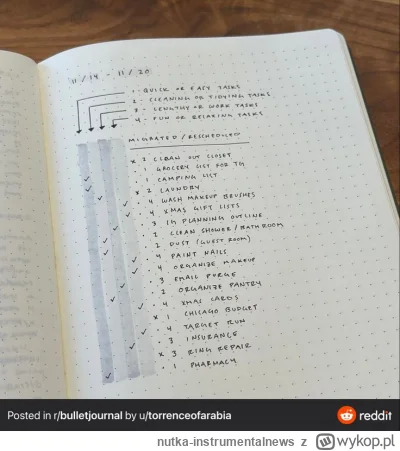 11/14 - 11/20
1 - QUICK OR EASY TASKS
2 - CLEANING OR TIDYING TASKS
3 - LENGTHY OR WORK TASKS
4 - FUN OR RELAXING TASKS
MIGRATED / RESCHEDULED
x 2 CLEAN OUT CLOSET
· 1 GROCERY LIST FOR TG
· 1 CAMPING LIST
x 2 LAUNDRY
· 4 WASH MAKEUP BRUSHES
· 4 XMAS GIFT LISTS
· 3 IG PLANNING OUTLINE
· 2 CLEAN SHOWER / BATHROOM
· 2 DUST (GUEST ROOM)
· 4 PAINT NAILS
· 4 ORGANIZE MAKEUP
· 3 EMAIL PURGE
· 2 ORGANIZE PANTRY
· 4 XMAS CARDS
x 1 CHICAGO BUDGET
· 4 TARGET RUN
· 3 INSURANCE
x 3 RING REPAIR
· 1 PHARMACY
Posted in r/bulletjournal by u/torrenceofarabia
reddit
nutka-instrumentalnews z wykop.pl